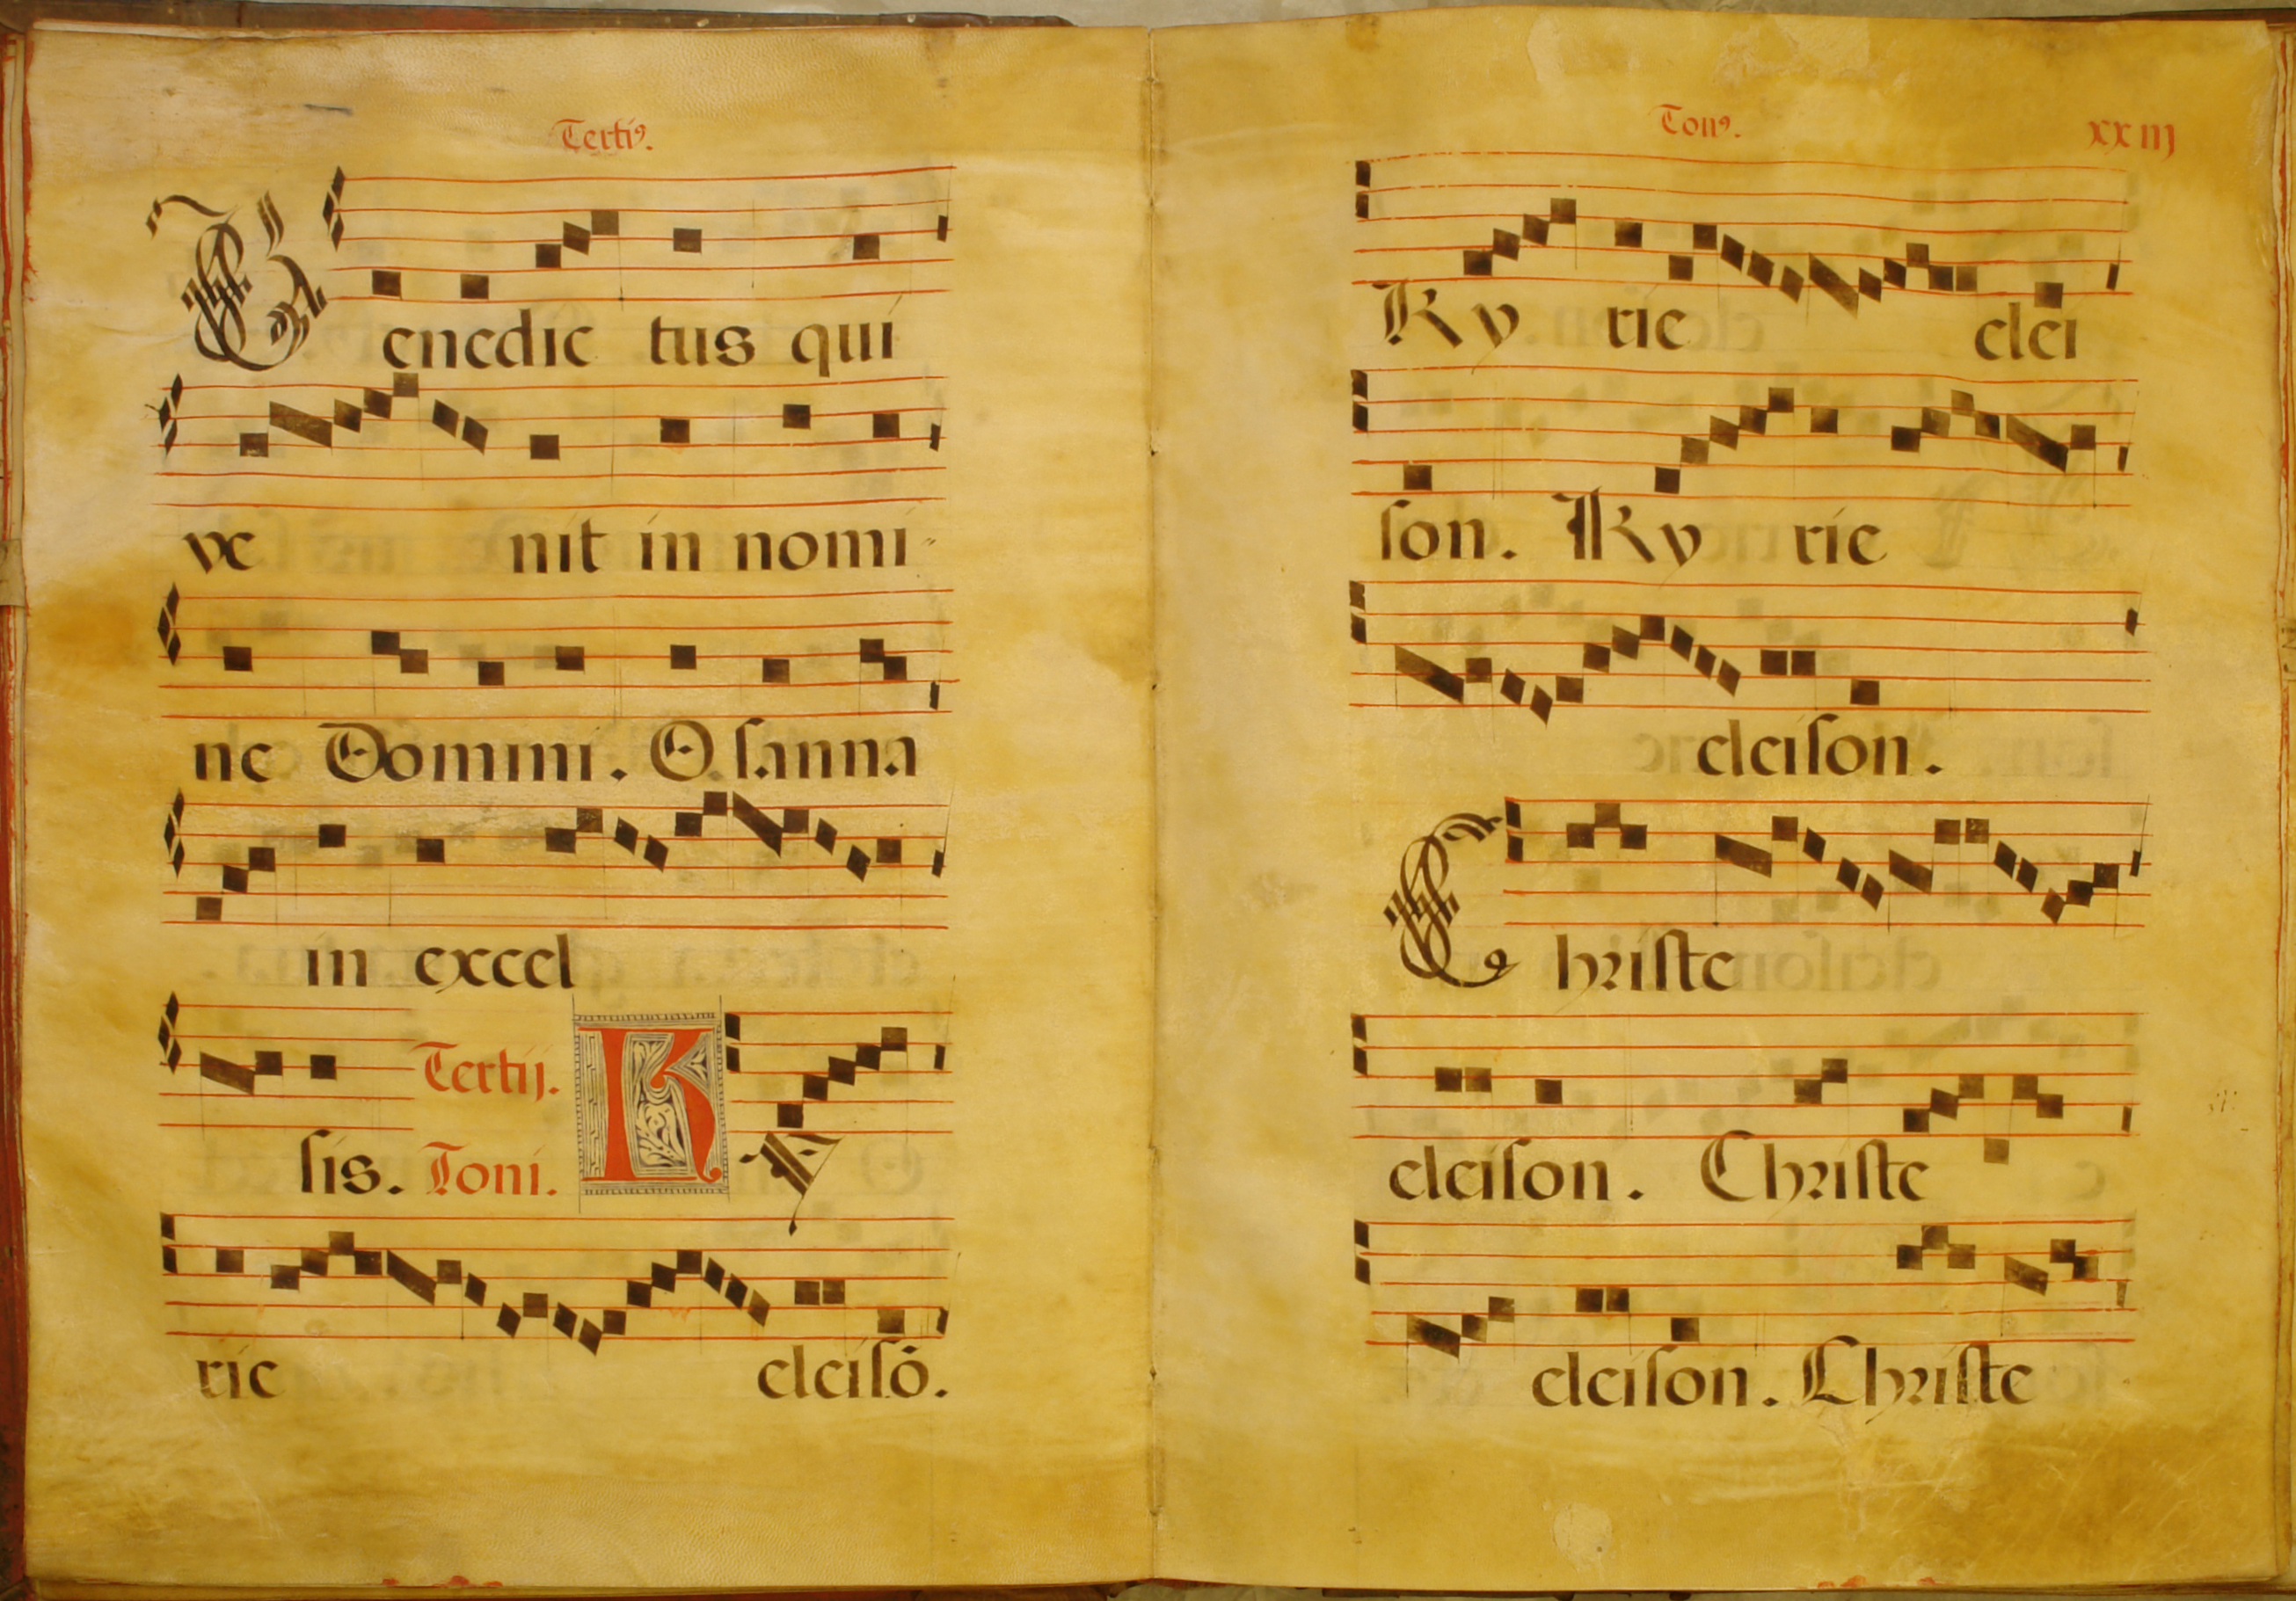 Tertiꝰ.
Benedic tus qui
ve nit in nomi-
ne Domini. O sanna
in excel
sis. Tertij. Toni. Ky
rie eleisō.
Tonꝰ. xxiij
Ky rie elei
son. Ky rie
eleison.
Christe
eleison. Christe
eleison. Christe